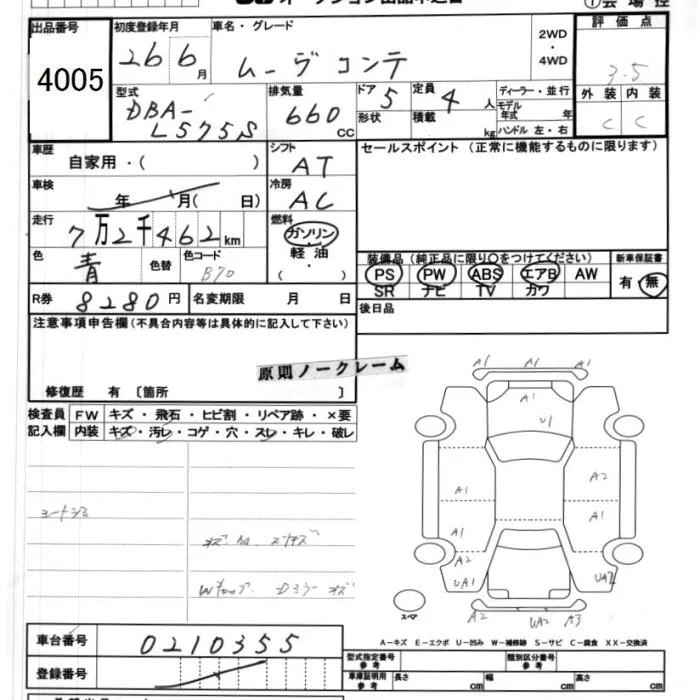 出品番号 4005
初度登録年月 26 6月
車名・グレード ムーヴコンテ
2WD・4WD
評価点 3.5
外装 内装
C C
型式 DBA-L575S
排気量 660 CC
ドア 5
形状
定員 4 人
積載 kg
ディーラー・並行
モデル年式 年
ハンドル 左・右
車歴 自家用・( )
シフト AT
セールスポイント (正常に機能するものに限ります)
車検 年 月( 日)
冷房 AC
走行 7万2千462km
燃料 ガソリン・軽油・
色 青 色替
色コード B70
装備品(純正品に限り○をつけてください)
新車保証書
PS PW ABS エアB AW
有・無
SR ナビ TV カワ
R券 8280円
名変期限 月 日
後日品
注意事項申告欄(不具合内容等は具体的に記入して下さい)
原則ノークレーム
修復歴 有 〔箇所 〕
検査員 FW キズ・飛石・ヒビ割・リペア跡・×要
記入欄 内装 キズ・汚レ・コゲ・穴・スレ・キレ・破レ
A1 A1 A1
A1
U1
A1 A2
A1 A1
A2 UA1 UA2
A2 UA2 A3
スペア
シートシミ
A-キズ E-エクボ U-凹み W-補修跡 S-サビ C-腐食 XX-交換済
車台番号 0210355
型式指定番号 参考
類別区分番号 参考
登録番号
車庫証明用 参考 長さ cm 幅 cm 高さ cm